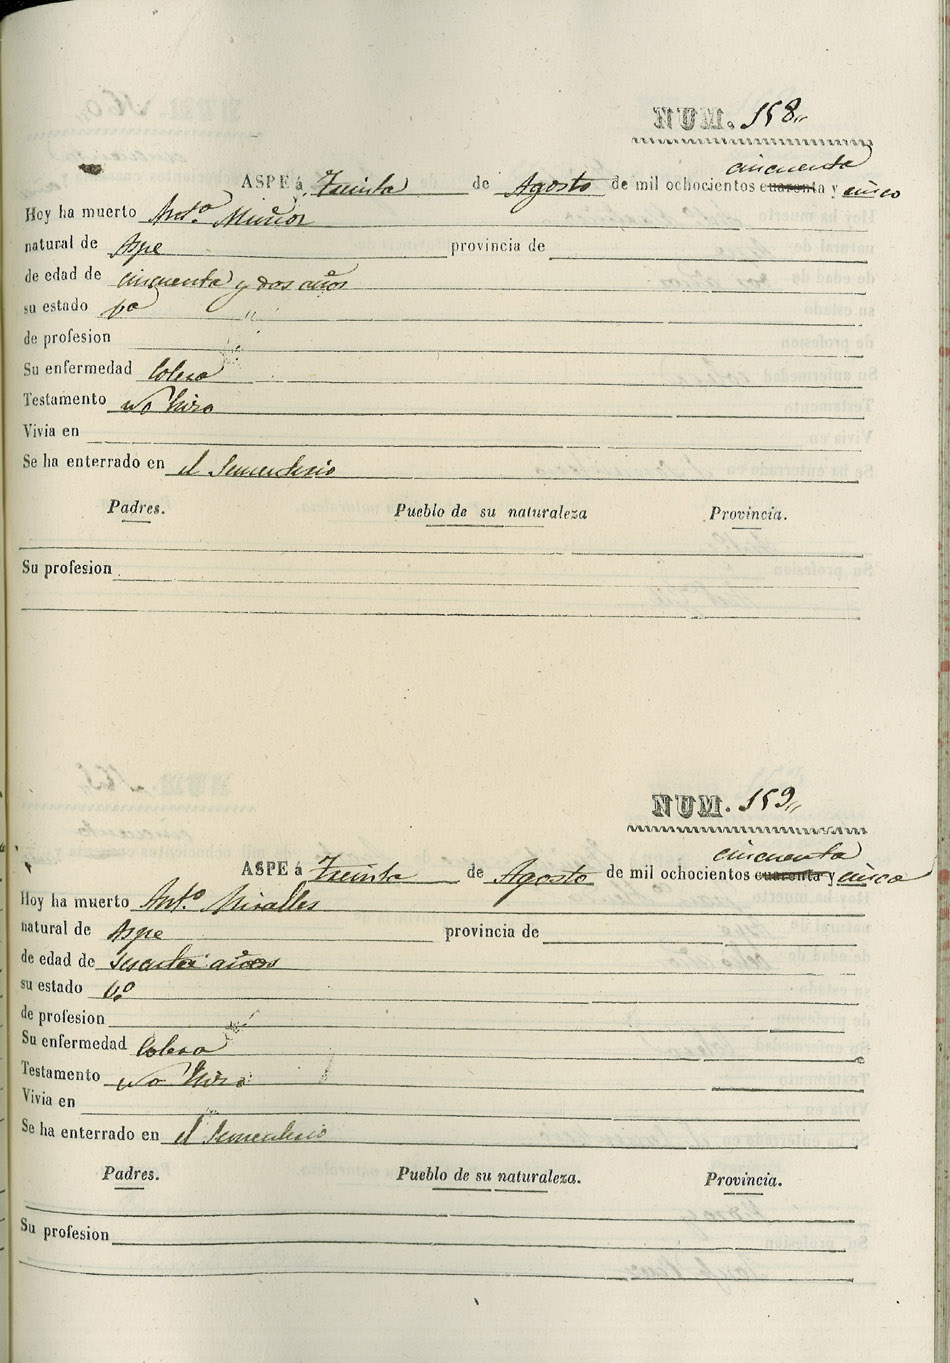 NUM. 158,,
cincuenta
ASPE á Treinta de Agosto de mil ochocientos cuarenta y cinco
Hoy ha muerto Ant.º Muñoz
natural de Aspe provincia de
de edad de cincuenta y dos años
su estado
de profesion
Su enfermedad Colera
Testamento no hizo
Vivia en
Se ha enterrado en el Sementerio
Padres. Pueblo de su naturaleza Provincia.
Su profesion
NUM. 159,,
cincuenta
ASPE á Treinta de Agosto de mil ochocientos cuarenta y cinco
Hoy ha muerto Ant.º Miralles
natural de Aspe provincia de
de edad de sesenta años
su estado
de profesion
Su enfermedad Colera
Testamento no hizo
Vivia en
Se ha enterrado en el Sementerio
Padres. Pueblo de su naturaleza. Provincia.
Su profesion